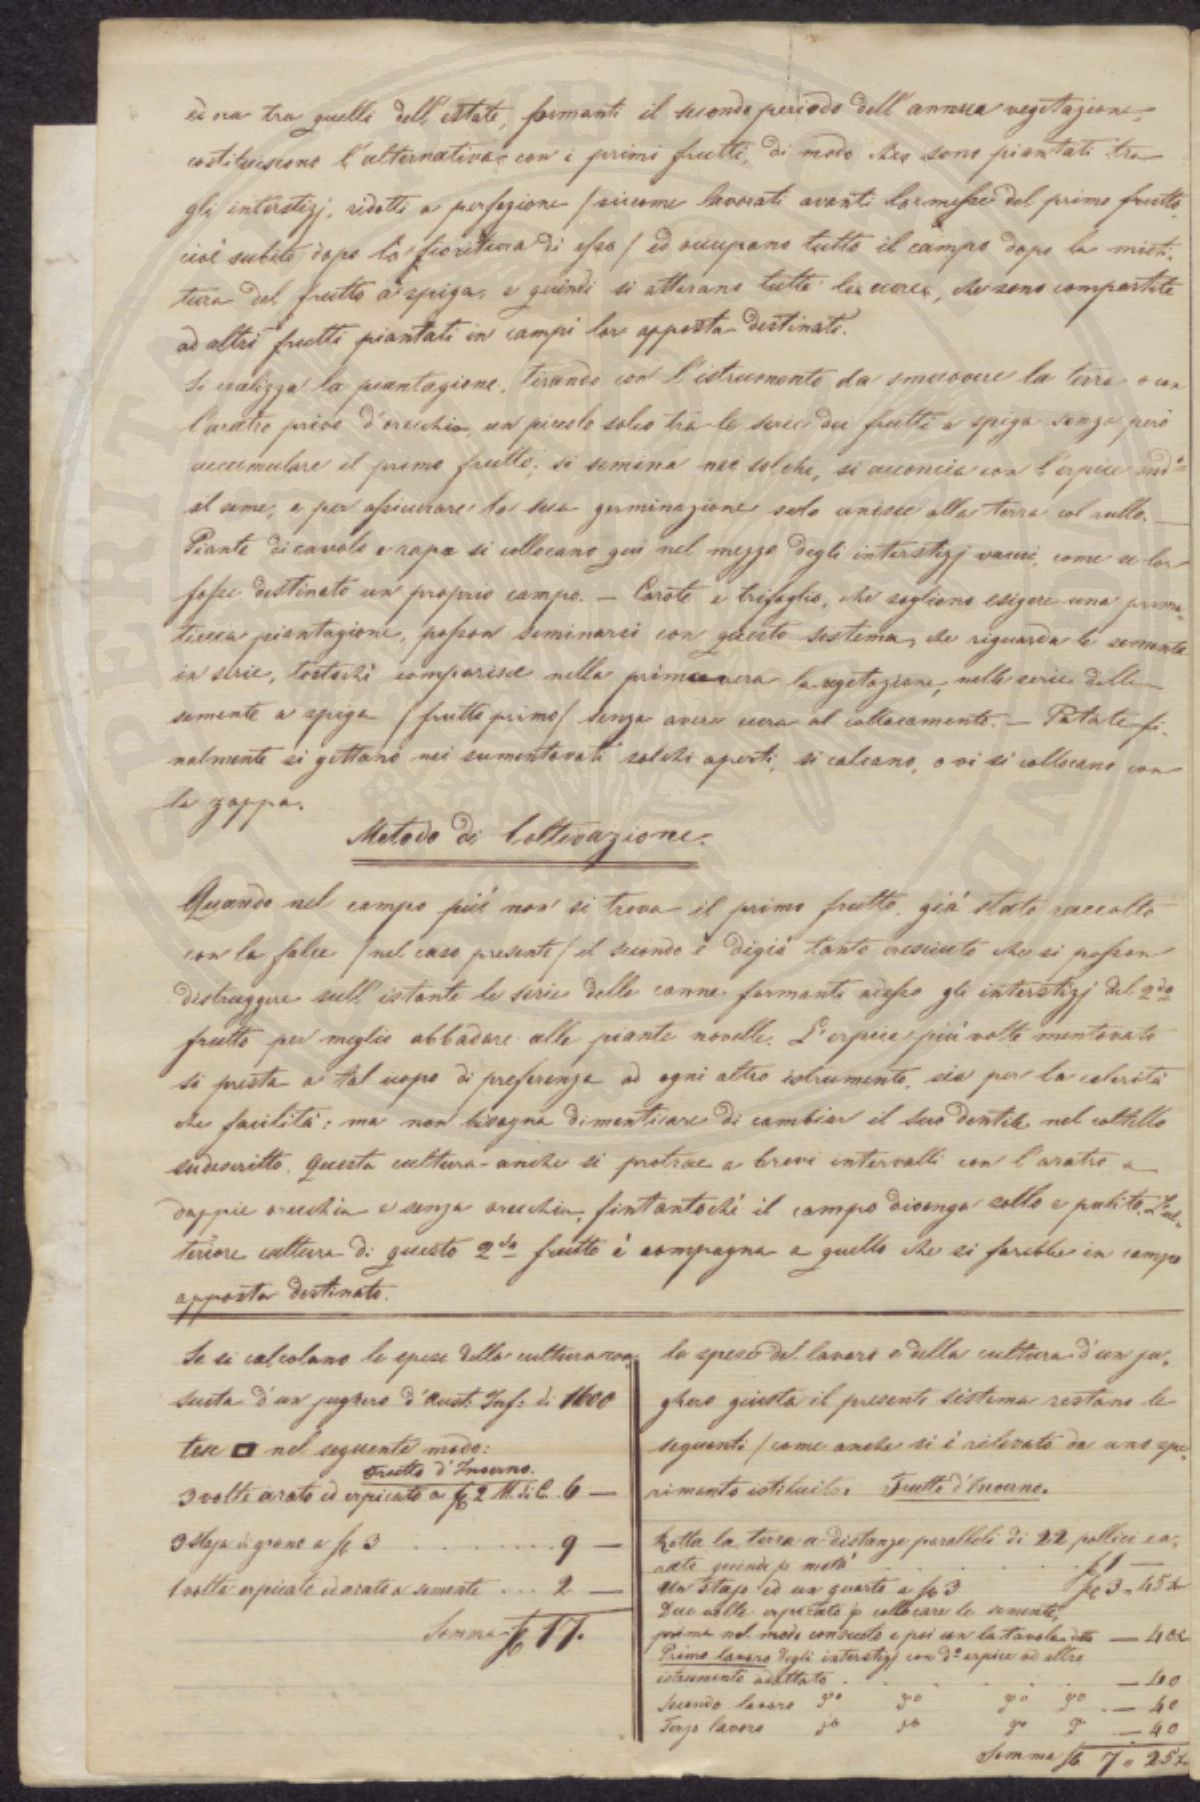 ed ora tra quelli dell'estate, formanti il secondo periodo dell'annua vegetazione,
costituiscono l'alternativa con i primi frutti, di modo che sono piantati tra
gli interstizj, ridotti a perfezione / siccome lavorati avanti la messe del primo frutto,
cioè subito dopo la fioritura di esso / ed occupano tutto il campo dopo la mieti-
tura del frutto a spiga, e quindi si atterano tutte le cure, che sono compartite
ad altri frutti piantati in campi lor apposta destinati.
Si realizza la piantagione, tirando con l'istrumento da smuovere la terra o con
l'aratro privo d'orecchio, un piccolo solco tra le serie dei frutti a spiga senza però
accumulare il primo frutto; si semina nei solchi, si acconcia con l'erpice sud.o
il seme, e per assicurare la sua germinazione sola unisce alla terra col rullo.
Piante di cavolo e rape si collocano qui nel mezzo degli interstizj vacui, come se lor
fosse destinato un proprio campo. — Carote e trifoglio, che sogliono esigere una prima-
ticcia piantagione, posson seminarsi con questo sistema, che riguarda le semente
in serie, tostochè comparisce nella primavera la vegetazione, nelle serie delle
semente a spiga / frutto primo / senza avere cura al collocamento. — Patate fi-
nalmente si gettano nei summentovati solchi aperti, si calcano, o vi si collocano con
la zappa.
Metodo di Coltivazione.
Quando nel campo più non si trova il primo frutto, già stato raccolto
con la falce / nel caso presente / il secondo è digià tanto cresciuto che si posson
distruggere sull'istante le serie delle canne formanti adesso gli interstizj del 2do
frutto per meglio abbadare alle piante novelle. L'erpice più volte mentovato
si presta a tal uopo di preferenza ad ogni altro istrumento, sia per la celerità
che facilità: ma non bisogna dimenticare di cambiar il suo dentile nel coltello
sudescritto. Questa cultura anche si protrae a brevi intervalli con l'aratro a
doppie orecchia e senza orecchia, fintantochè il campo divenga sollo e pulito. L'ul-
teriore cultura di questo 2do frutto è compagna a quello che si farebbe in campo
apposta destinato.
Se si calcolano le spese della cultura con-
sueta d'un jughero d'Aust. Inf: di 1600
tese □ nel seguente modo:
Frutto d'Inverno.
3 volte arato ed erpicato a f 2 M.d.C. 6 —
3 staja di grano a f 3 . . . . . . . . . 9 —
1 volta erpicato ed arato a semente . . . . 2 —
Somma f 17.
le spese del lavoro e della cultura d'un ju-
ghero giusta il presente sistema restano le
seguenti / come anche si è rilevato da uno spe-
rimento istituito. Frutto d'Inverno.
Rotta la terra a distanze paralleli di 22 pollici e a-
rata quindi p metà . . . . . . . f 1 —
Un stajo ed un quarto a f 3 f 3 " 45 x
Due volte erpicato p collocare le semente,
prima nel modo consueto e poi con la tavola dtta — 40x
Primo lavoro degli interstizj con do erpice ad altro
istrumento adattato . . . . . . — 40
Secondo lavoro do do do do . — 40
Terzo lavoro do do do do — 40
Somma f 7 " 25x